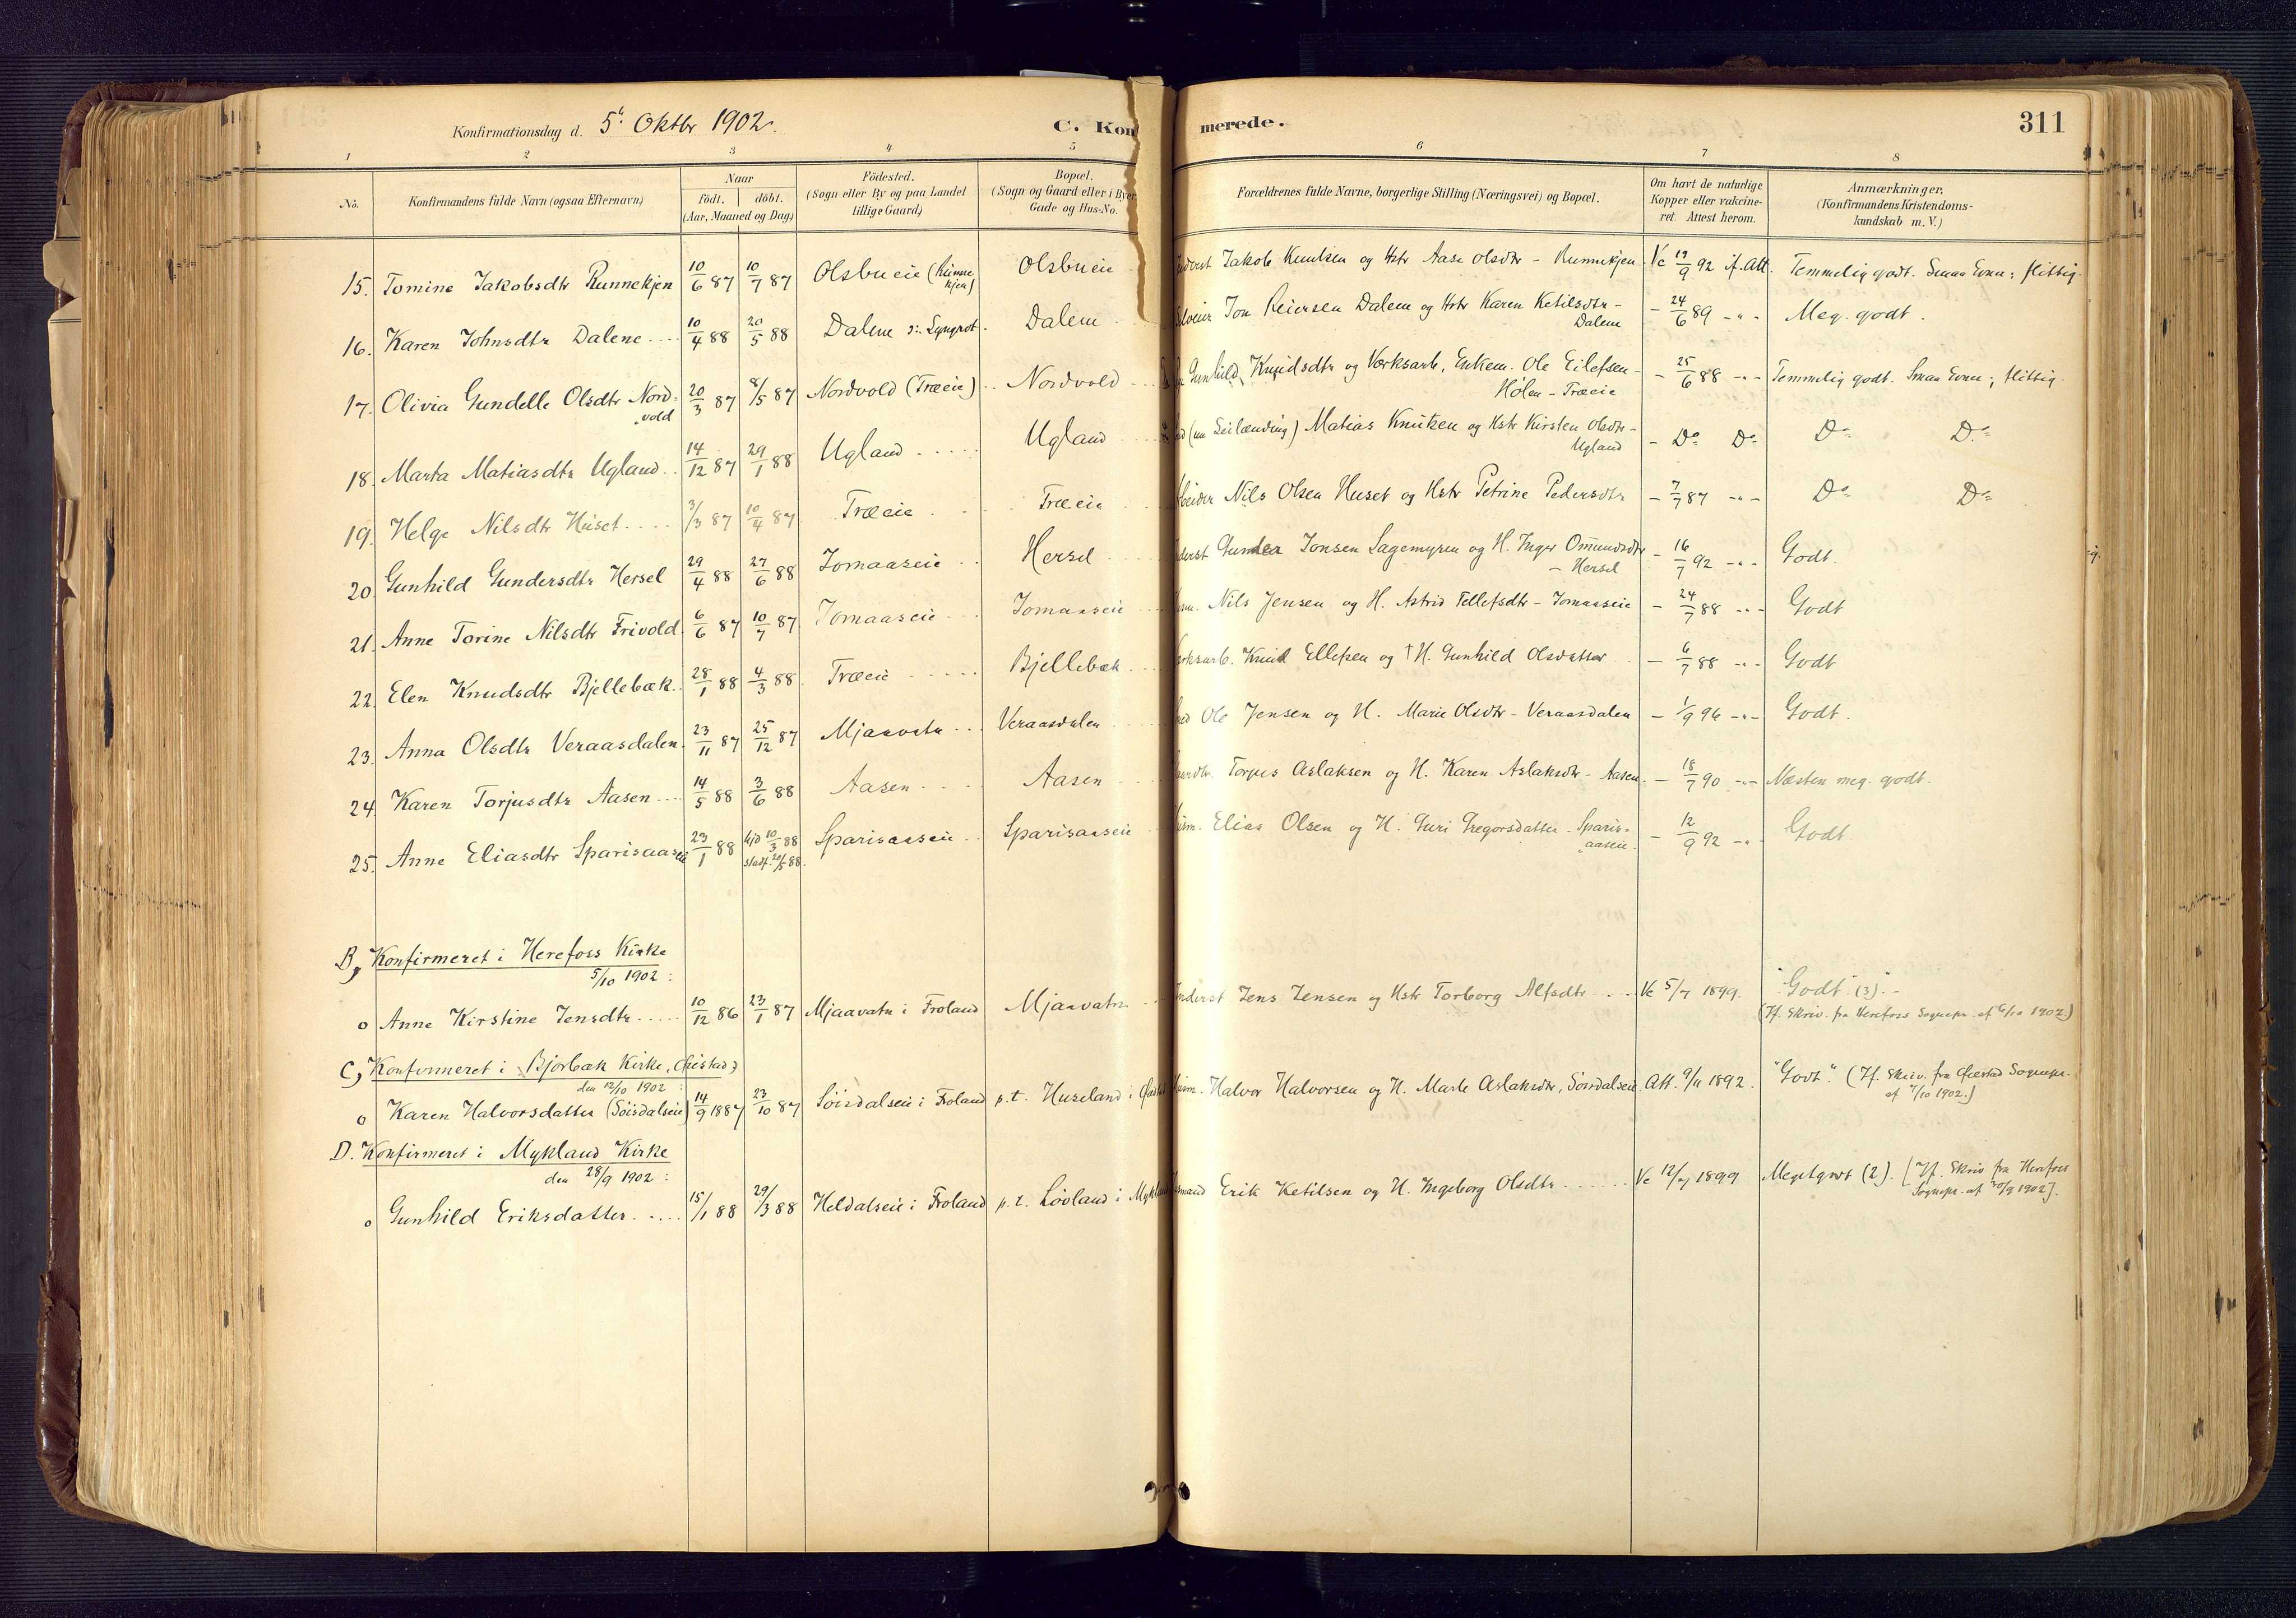 Konfirmationsdag d. 5' Oktbr 1902. C. Kon merede. 311
1 2 3 4 5 6 7 8
No. Konfirmandens fulde Navn (ogsaa Efternavn) Naar födt. döbt. (Aar, Maaned og Dag) Födested. (Sogn eller By og paa Landet tillige Gaard) Bopæl. (Sogn og Gaard eller i Byer Gade og Hus-No. Forældrenes fulde Navne, borgerlige Stilling (Næringsvei) og Bopæl. Om havt de naturlige Kopper eller vakcineret. Attest herom. Anmærkninger. (Konfirmandens Kristendomskundskab m. V.)
15. Tomine Jakobsdtr Runnekjen 10/6 87 10/7 87 Olsbueie (Runnekjen) Olsbueie Jakob Knutsen og Hstr Aase Olsdtr - Runnekjen Vc 19/9 92 if. Att. Temmelig godt. Smaa Evner; flittig
16. Karen Johnsdtr Dalene 10/4 88 20/5 88 Dalene s: Lyngrot. Dalene Jon Reiersen Dalene og Hstr Karen Ketilsdtr - Dalene - 24/6 89 - " - Meg. godt.
17. Olivia Gundelle Olsdtr Nordvold 20/3 87 8/5 87 Nordvold (Træeie) Nordvold Gunhild Knudsdtr og Værksarb. Enkem. Ole Eilefsen - Hølen - Træeie - 25/6 88 - " - Temmelig godt. Smaa Evner; flittig
18. Marta Matiasdtr Ugland 14/12 87 29/1 88 Ugland Ugland (nu Leilænding) Matias Knutsen og Hstr Kirsten Olsdtr - Ugland - Do Do Do Do
19. Helge Nilsdtr Huset 3/3 87 10/4 87 Træeie Træeie Nils Olsen Huset og Hstr Petrine Pedersdtr - 7/7 87 - " - Do Do
20. Gunhild Gundersdtr Hersel 29/4 88 27/6 88 Jomaaseie Hersel Gunder Jonsen Lagemyren og H. Inger Omundsdtr - Hersel - 16/7 92 - " - Godt.
21. Anne Torine Nilsdtr Frivold 6/6 87 10/7 87 Jomaaseie Jomaaseie Nils Jensen og H. Astrid Tellefsdtr - Jomaaseie - 24/7 88 - " - Godt
22. Elen Knudsdtr Bjellebæk 28/1 88 4/3 88 Træeie Bjellebæk Knud Ellefsen og † H. Gunhild Olsdatter - 6/7 88 - " - Godt
23. Anna Olsdtr Veraasdalen 23/11 87 25/12 87 Mjaavatn Veraasdalen Ole Jensen og H. Marie Olsdtr - Veraasdalen - 1/9 96 - " - Godt.
24. Karen Torjusdtr Aasen 14/5 88 3/6 88 Aasen Aasen Torjus Aslaksen og H. Karen Aslaksdtr - Aasen - 18/7 90 - " - Næsten meg. godt.
25. Anne Eliasdtr Sparisaaseie 23/1 88 hjd 10/3 88 stadf. 20/5 88 Sparisaaseie Sparisaaseie Elias Olsen og H. Guri Gregorsdatter - Sparisaaseie - 12/9 92 - " - Godt.
B, Konfirmeret i Herefoss Kirke
5/10 1902:
o Anne Kirstine Jensdtr 10/12 86 23/1 87 Mjaavatn i Froland Mjaavatn Inderst Jens Jensen og Hstr Torborg Alfsdtr Vc 5/7 1899. "Godt" (3). -
(Jf. Skriv. fra Herefoss Sognepr. af 6/10 1902)
C, Konfirmeret i Bjorbæk Kirke, (Øiestad)
den 12/10 1902:
o Karen Halvorsdatter (Søisdalseie) 14/9 1887 23/10 87 Søisdalseie i Froland p.t. Huseland i Husm. Halvor Halvorsen og H. Marte Aslaksdtr, Søisdalseie Att. 9/11 1892. "Godt". (Jf. Skriv. fra Øiestad Sognepr. af 7/10 1902.)
D. Konfirmeret i Mykland Kirke
den 28/9 1902:
o Gunhild Eriksdatter 15/1 88 29/3 88 Heldalseie i Froland p.t. Lovland i Erik Ketilsen og H. Ingeborg Olsdtr Vc 12/7 1899 Megetgodt (2). [Jf. Skriv fra Herefoss Sognepr. af 30/9 1902].